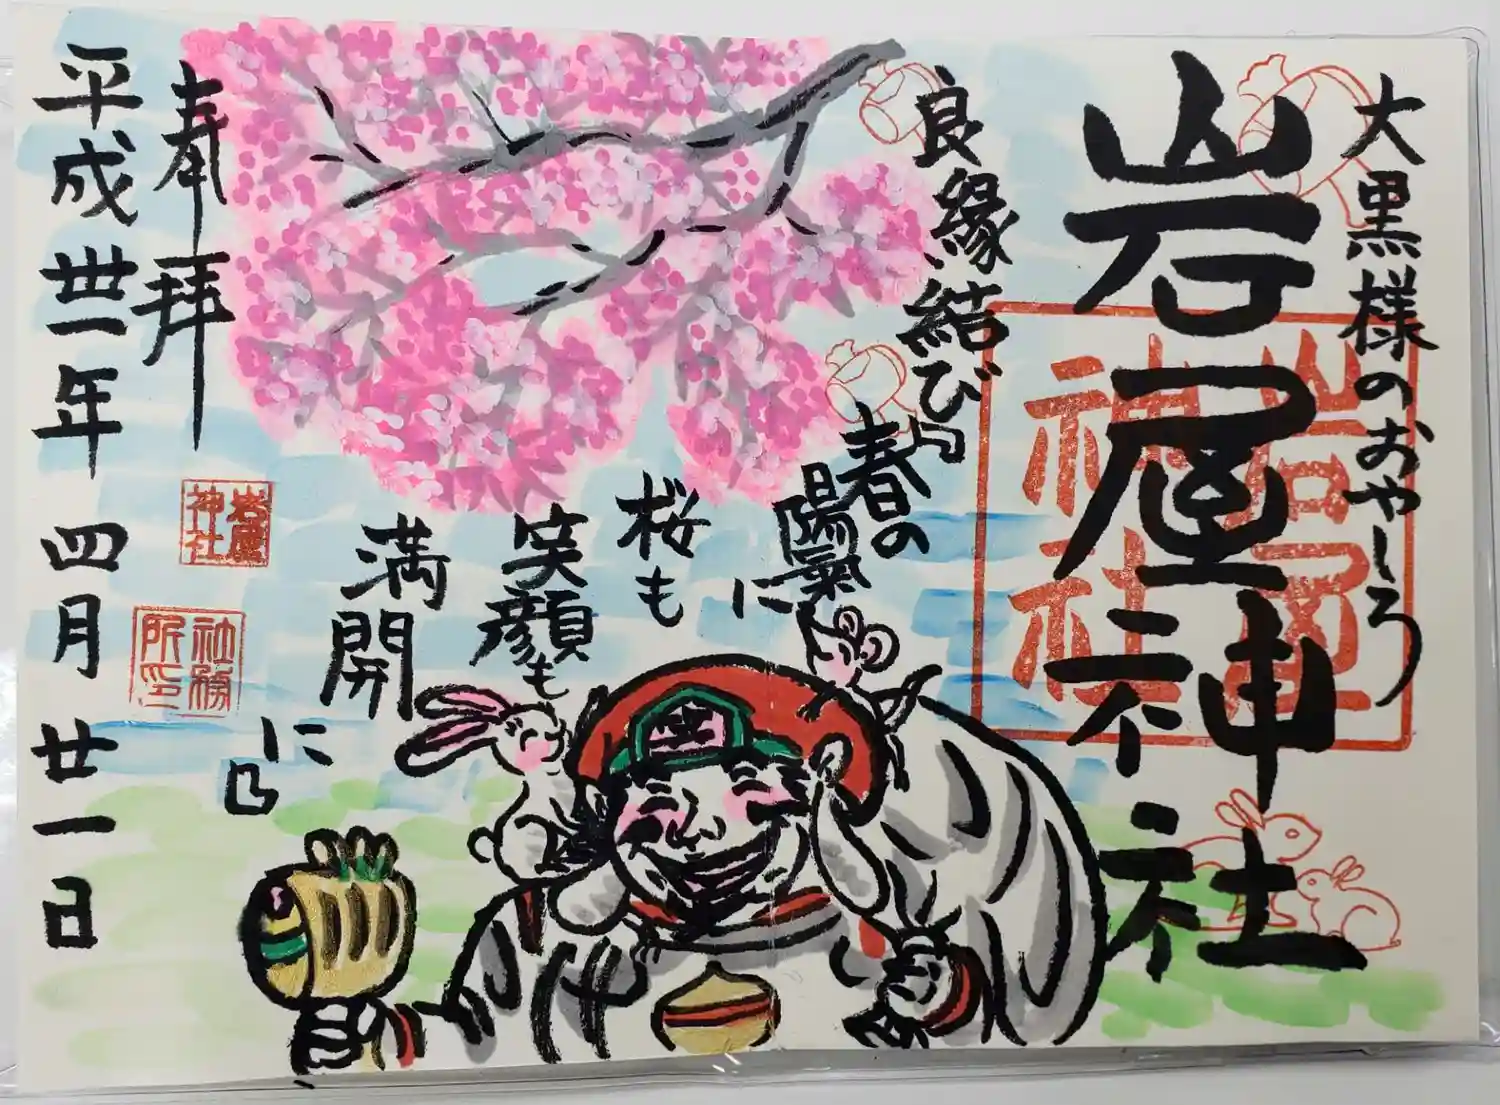 大黒様のおやしろ
岩屋神社
岩屋
神社
良縁結び
春の
陽氣
に
桜も
笑顔も
満開
に
奉拝
岩屋
神社
社務
所印
平成丗一年 四月 廿一日